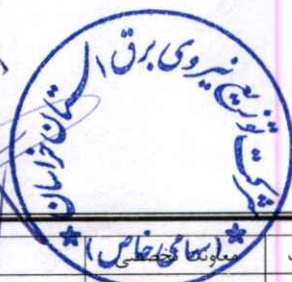 شرکت توزیع نیروی برق استان خراسان
(سهامی خاص)
معاونت